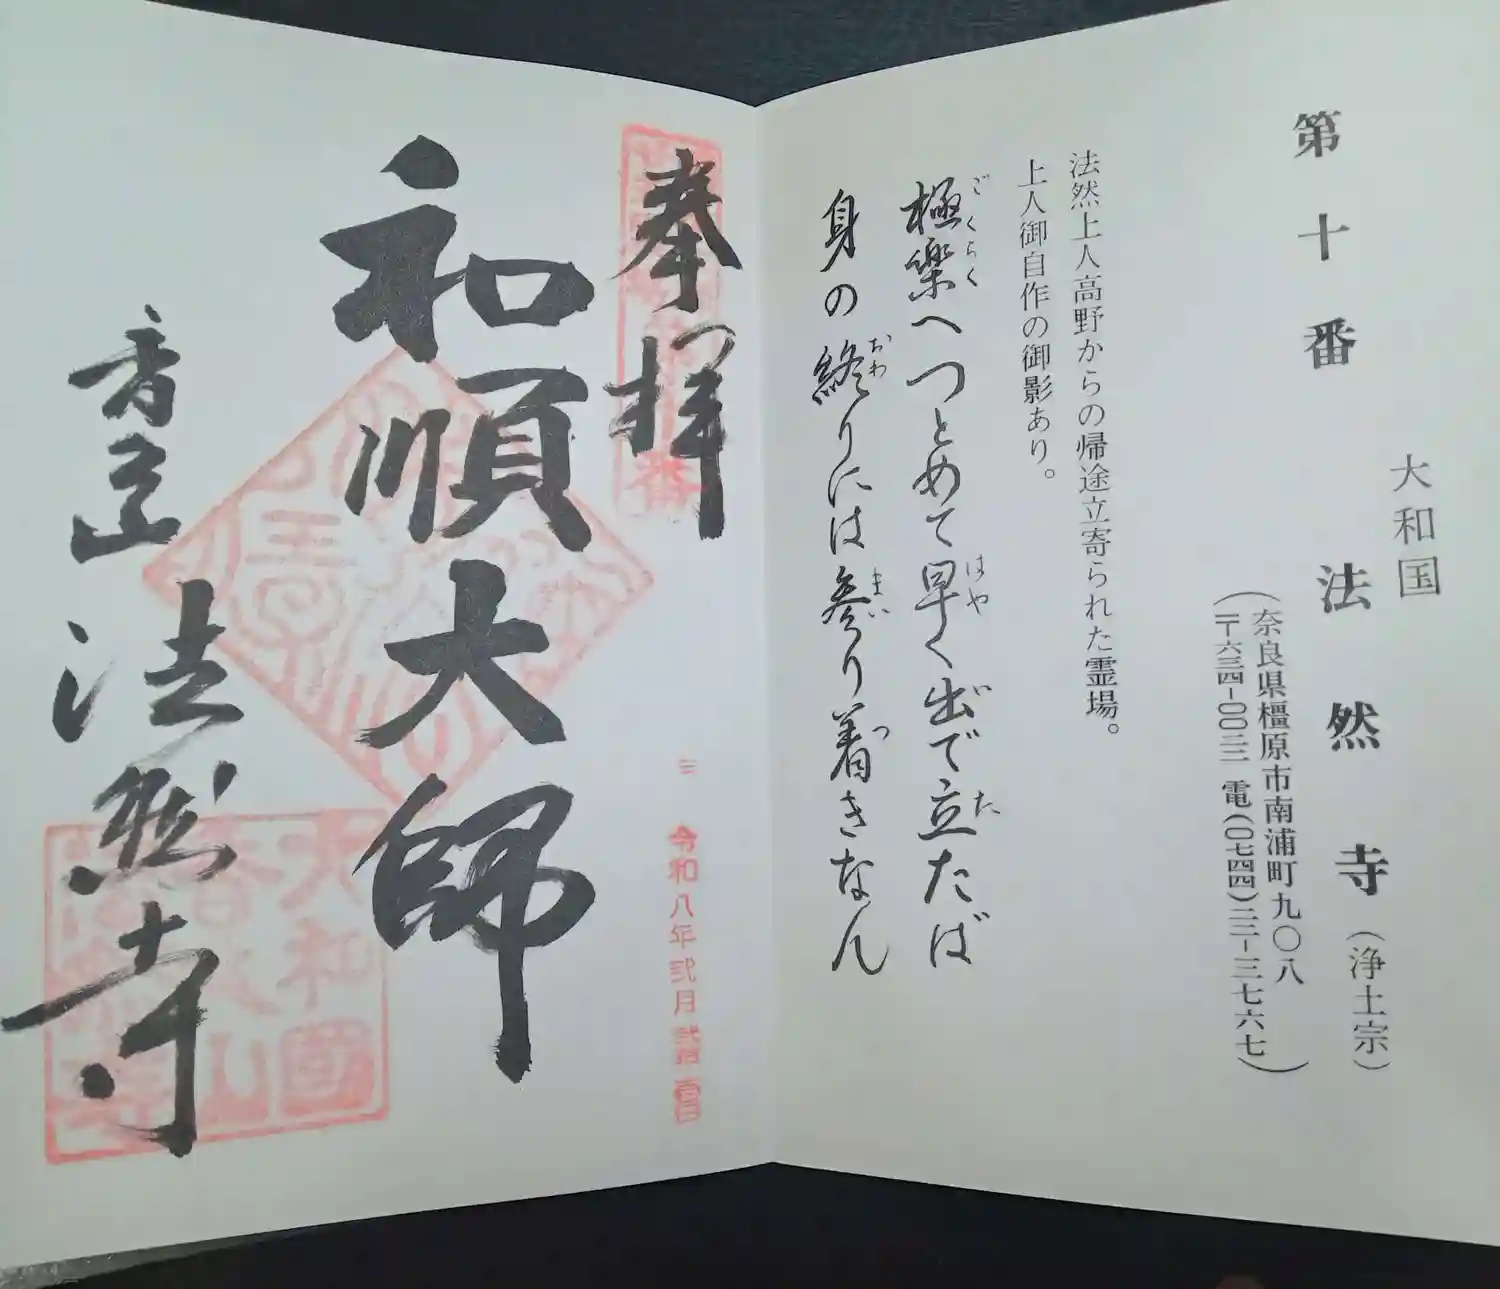 第十番
大和国
法然寺(浄土宗)
(奈良県橿原市南浦町九〇八
〒六三四-〇〇二二 電(〇七四四)二二-三七六七)
法然上人高野からの帰途立寄られた霊場。
上人御自作の御影あり。
極楽へつとめて早く出で立たば
ごくらく
はや
い
た
身の終りには参り着きなん
おわ
まい
つ
奉拝
和順大師
香久山
法然寺
番
大和國
三
令和八年弐月